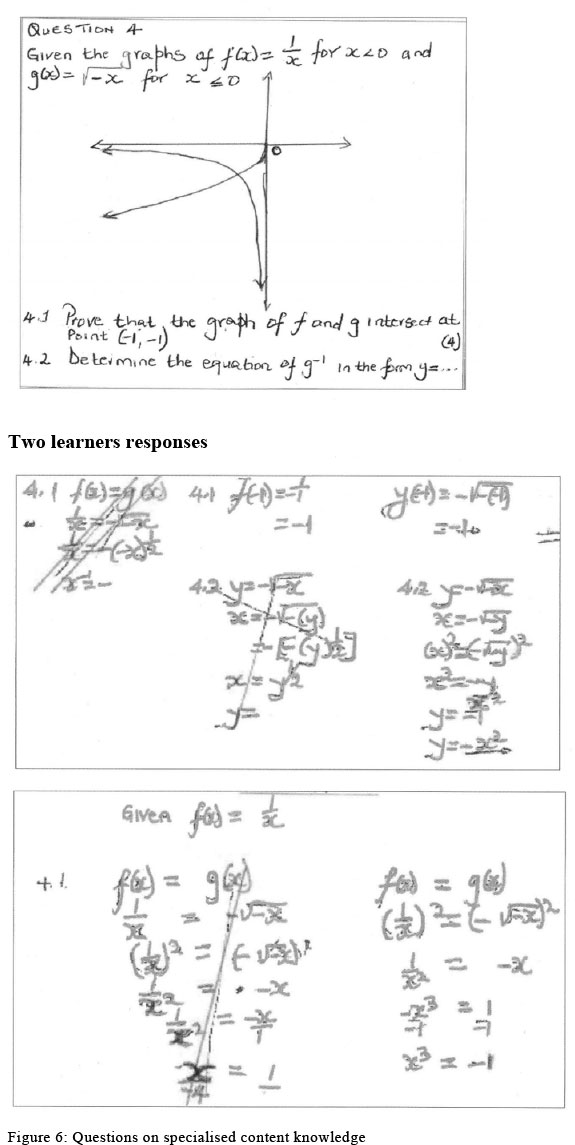 QUESTION 4
Given the graphs of f(x) = 1/x for x<0 and
g(x) = √-x for x ≤ 0
0
4.1 Prove that the graph of f and g intersect at
Point (-1, -1) (4)
4.2 Determine the equation of g⁻¹ in the form y=...
Two learners responses
4.1 f(x)=g(x)
1/x = -√-x
1/x = -(-x)^1/2
x⁻¹ = -
4.1 f(-1) = 1/-1
= -1
y(-1) = -√-(-1)
= -1
4.2 y = -√-x
x = -√-(y)
= -[-(y)^1/2]
x = y^1/2
y =
4.2 y = -√-x
x = -√-y
(x)² = (-√-y)²
x² = -y
y = x²/-1
y = -x²
GIVEN f(x) = 1/x
4.1. f(x) = g(x)
1/x = -√-x
(1/x)² = (-√-x)²
1/x² = -x
1/x² = -x/1
= 1
f(x) = g(x)
(1/x)² = (-√-x)²
1/x² = -x
-x³/-1 = 1/-1
x³ = -1
Figure 6: Questions on specialised content knowledge